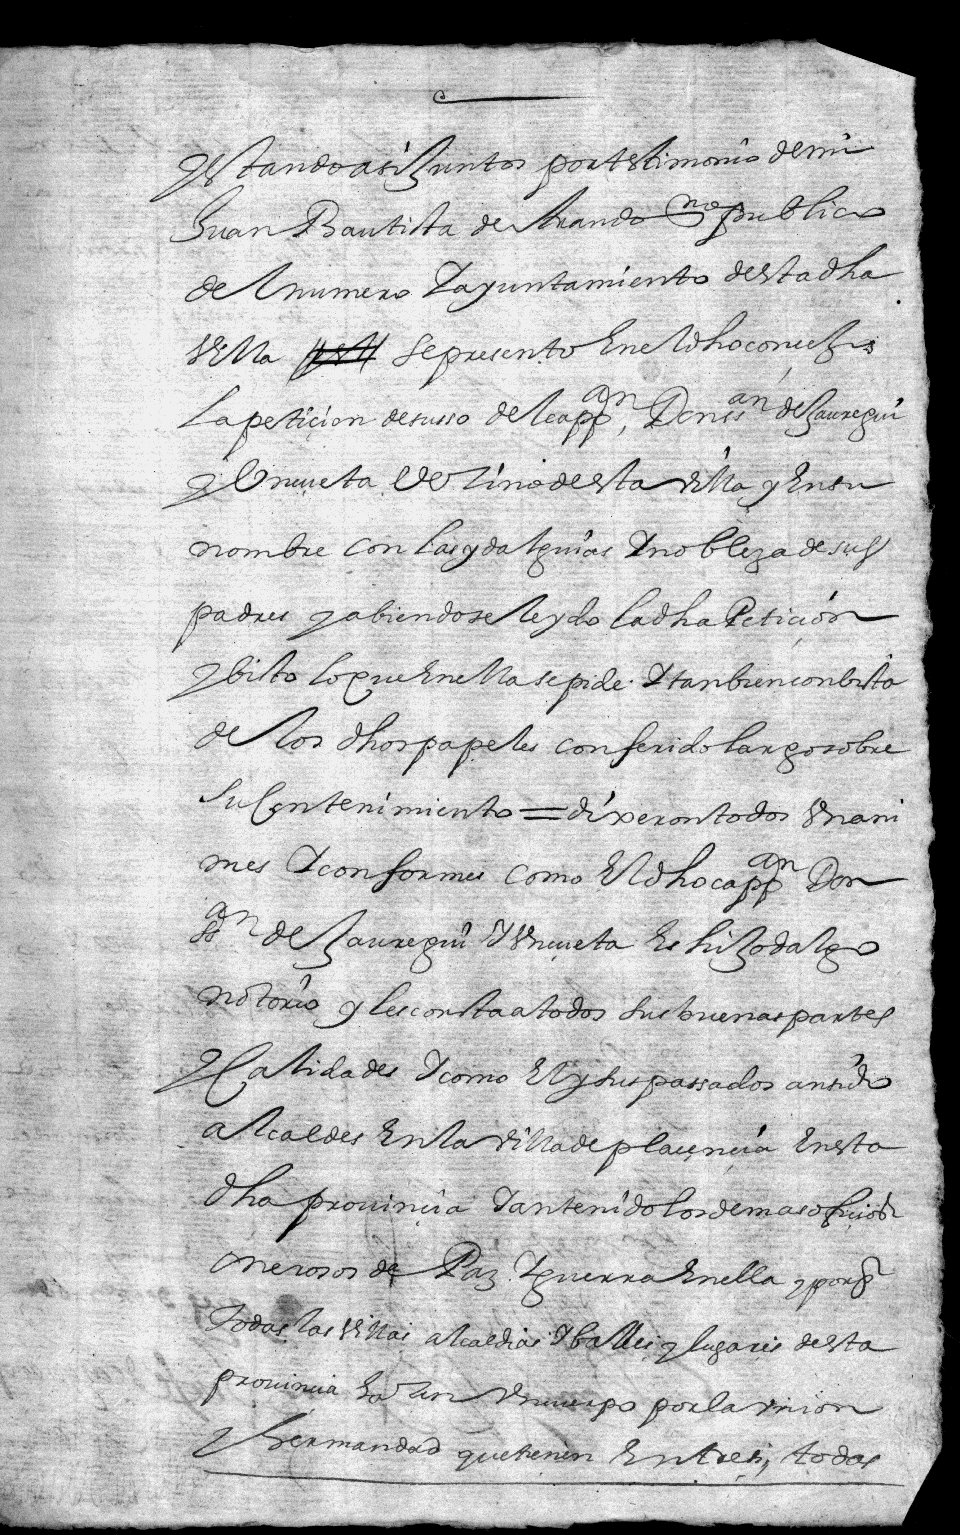 y estando asi Juntos por testimonio de mi
Juan Bautista de Arando no publico
del numero Y ayuntamiento desta dha
Villa se presento En el dho concejo
la peticion de susso del capp an, Don ss an de Jauregui
y Unceta Veçino desta Villa y En su
nombre con las ydalguias Y nobleza de sus
padres y abiendose leydo la dha Petiçion
y bisto lo que En ella se pide Y tanbien con bista
de los dhos papeles conferido largo sobre
su Contenimiento = dixeron todos Vnani
mes Y conformes como El dho capp an Don
ss an de Jauregui Y Vnçueta Es hiJo dalgo
notorio y les consta a todos sus buenas partes
y Calidades Y como El y sus passados an sido
alcaldes En la Villa de plaçençia En esta
dha prouinçia Y an tenido los demas ofiçios
onerosos de Paz Y guerra En ella y por q
todas las Villas alcaldias Y balles y lugares desta
prouinçia Es un Vn cuerpo por la vnion
y hermandad que tienen Entre si, todas